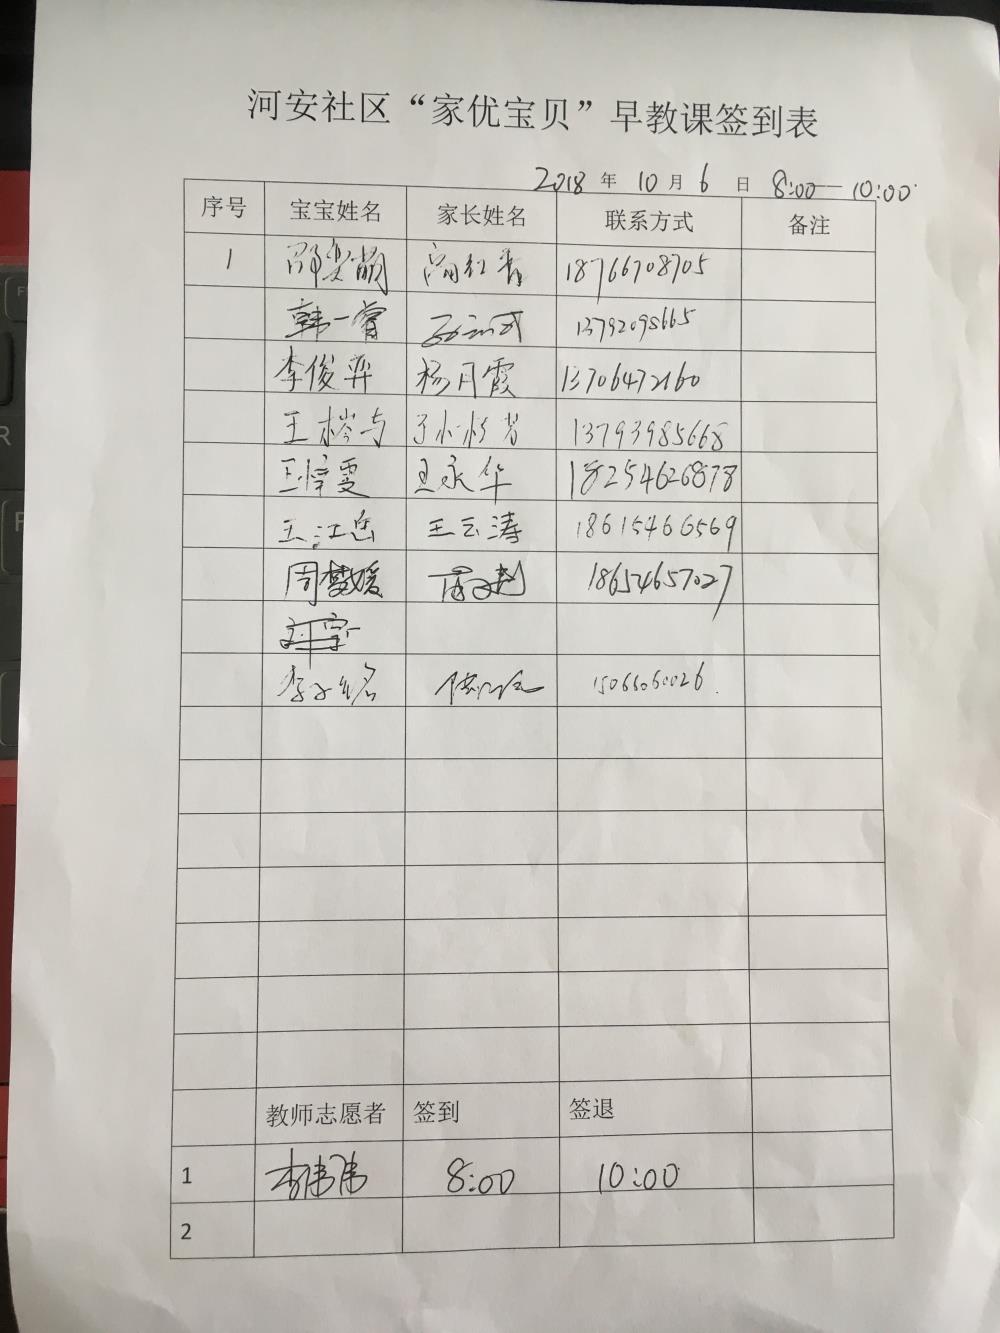 河安社区“家优宝贝”早教课签到表
2018 年 10 月 6 日 8:00—10:00
序号 宝宝姓名 家长姓名 联系方式 备注
1 邵奕萌 18766708705
韩一睿 13792095665
李俊弈 杨月霞 13706472160
王梣与 13793985668
王梓雯 王永华 18254626878
王江岳 王云涛 18615466569
周梦媛 18654657027
李 15066060026.
教师志愿者 签到 签退
1 李伟伟 8:00 10:00
2